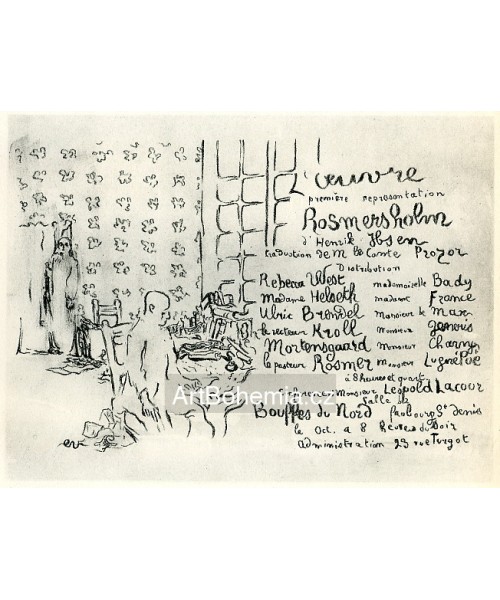 L'œuvre
première représentation
Rosmersholm
d'Henrik Ibsen
traduction de M. le Comte Prozor
Distribution
Rebecca West mademoiselle Bady
Madame Helseth madame France
Ulric Brendel Monsieur de Max
le recteur Kroll Monsieur
Mortensgaard Monsieur Charny
le pasteur Rosmer monsieur Lugné Poë
à 8 heures et quart
Monsieur Léopold Lacour
Salle des
Bouffes du Nord faubourg St denis
le Oct. a 8 heures du Soir
administration 23 rue Turgot
ev
ArtBohemia.cz